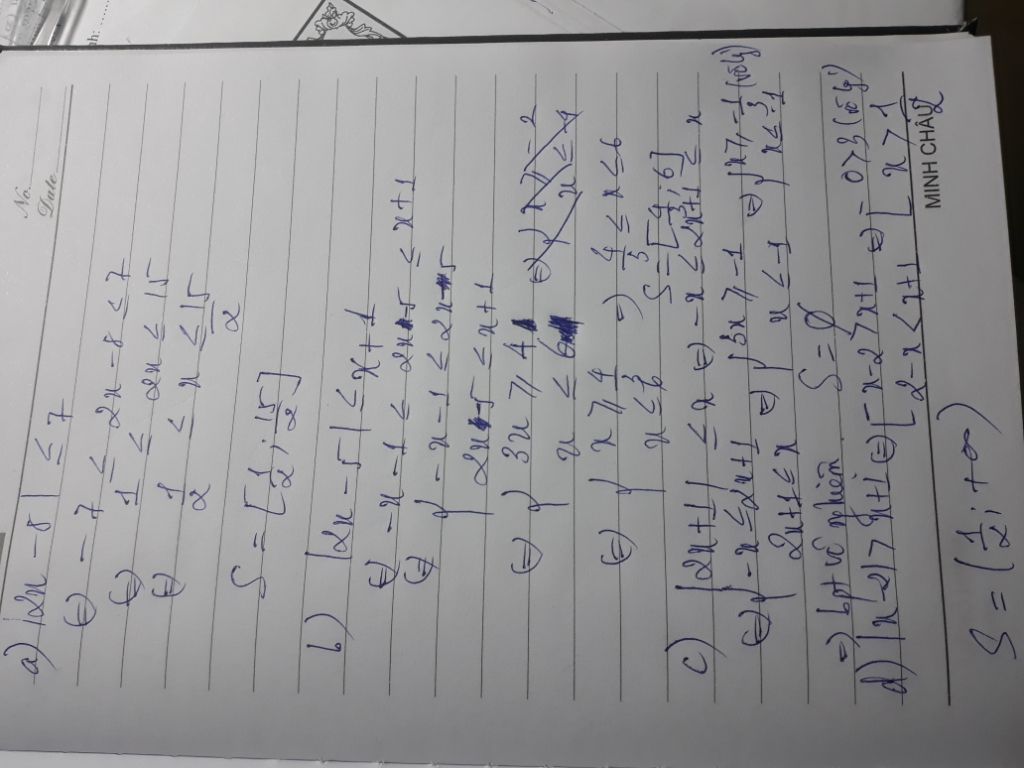 No.
Date
a) |2x - 8| ≤ 7
(=) -7 ≤ 2x - 8 ≤ 7
(=) 1 ≤ 2x ≤ 15
(=) 1/2 ≤ x ≤ 15/2
S = [1/2; 15/2]
b) |2x - 5| ≤ x + 1
(=) -x - 1 ≤ 2x - 5 ≤ x + 1
(=) { -x - 1 ≤ 2x - 5
2x - 5 ≤ x + 1
(=) { 3x ≥ 4
x ≤ 6
(=) { x ≥ 4/3 =) 4/3 ≤ x ≤ 6
x ≤ 6 S = [4/3; 6]
c) |2x + 1| ≤ x (=) -x ≤ 2x + 1 ≤ x
(=) { -x ≤ 2x + 1 (=) { 3x ≥ -1 (=) { x ≥ -1/3 (vô lý)
2x + 1 ≤ x x ≤ -1 x ≤ -1
=) bpt vô nghiệm S = ∅
d) |x - 2| > x + 1 (=) [ x - 2 > x + 1 (=) [ 0 > 3 (vô lý)
2 - x < x + 1 x > 1/2
MINH CHÂU
S = (1/2; +∞)